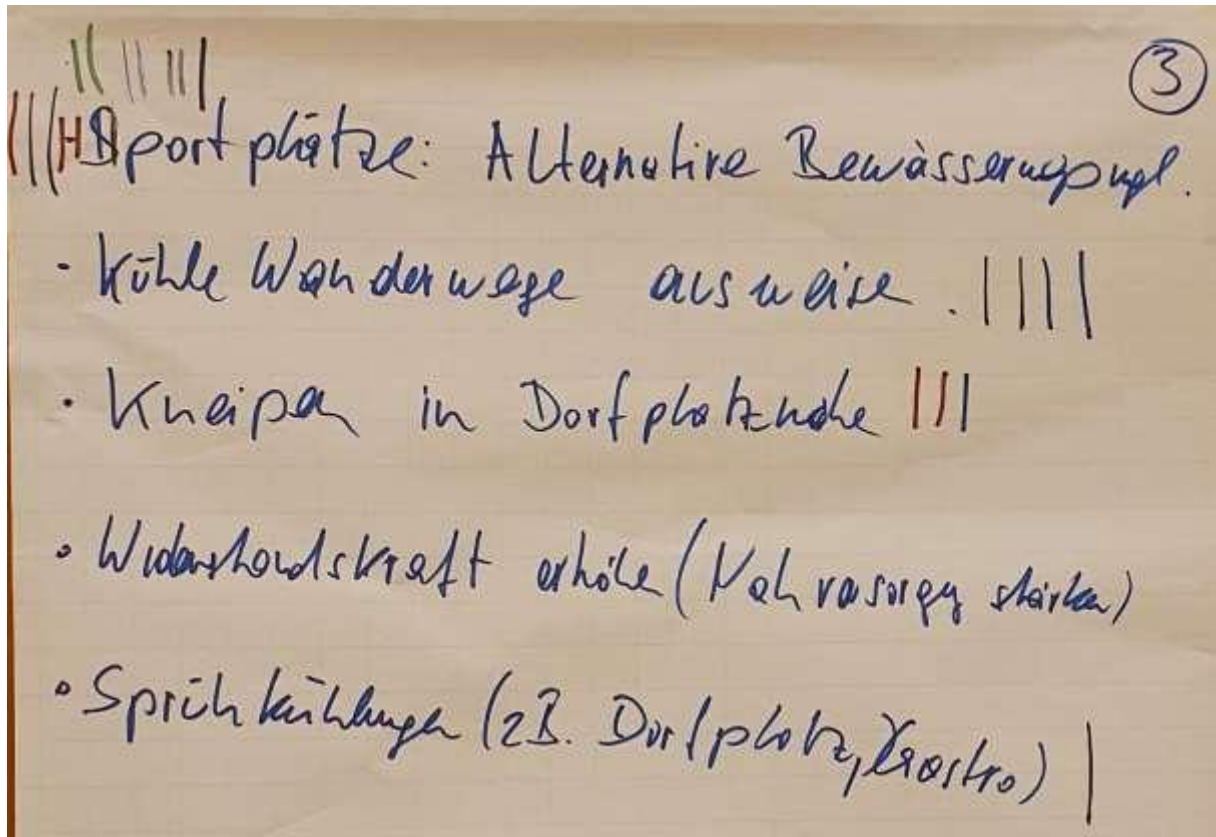 3
Sportplätze: Alternative Bewässerungsmgl.
· Kühle Wanderwege ausweise.
· Kneipen in Dorfplatznähe
• Widerstandskraft erhöhe (Nahvasorgg stärken)
• Sprühkühlungen (zB. Dorfplatz, Gastro)